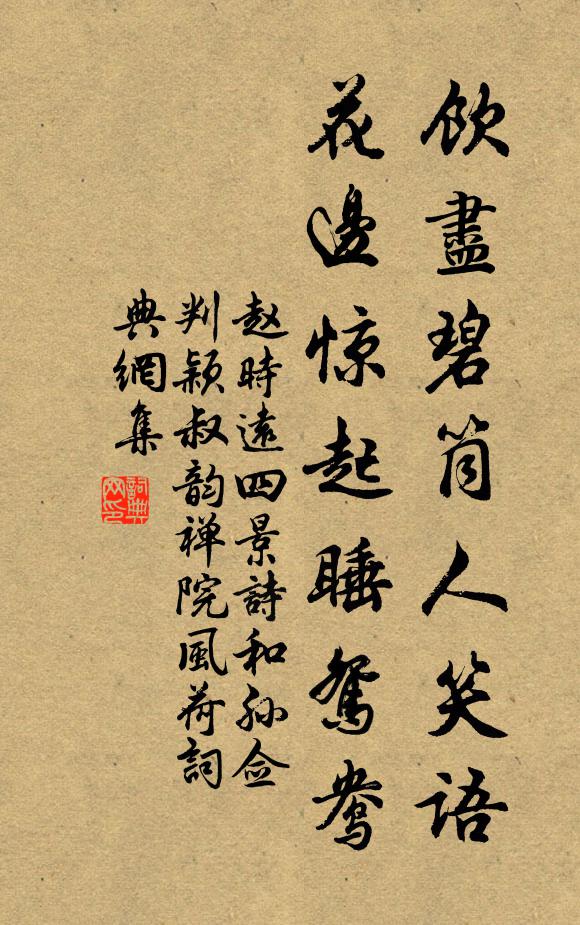 飲盡碧筒人笑語
花邊惊起睡鴛鴦
赵時遠四景詩和孙佥
判颖叔韵禅院風荷詞
典網集
詞典
网印